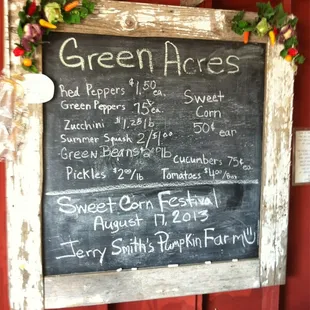 Green Acres
Red Peppers $1.50 ea.
Green Peppers 75¢ ea.
Sweet
Corn
50¢ ear
Zucchini $1.25 lb
Summer Squash 2/$1.00
Green Beans $2 lb
Cucumbers 75¢ ea.
Pickles $2.00/lb
Tomatoes $4.00/
Sweet Corn Festival
August 17, 2013
Jerry Smith's Pumpkin Farm